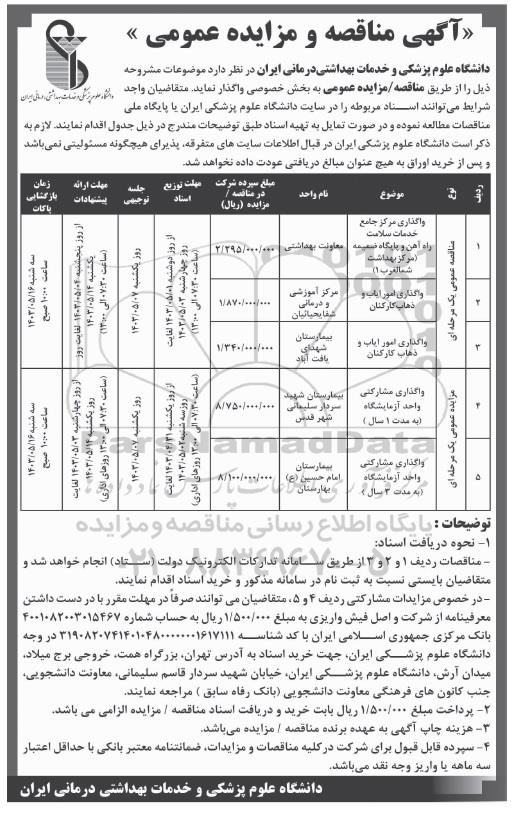 «آگهی مناقصه و مزایده عمومی »
دانشگاه علوم پزشکی و خدمات بهداشتی، درمانی ایران
دانشگاه علوم پزشکی و خدمات بهداشتی‌درمانی ایران در نظر دارد موضوعات مشروحه
ذیل را از طریق مناقصه/مزایده عمومی به بخش خصوصی واگذار نماید. متقاضیان واجد
شرایط می‌توانند اسناد مربوطه را در سایت دانشگاه علوم پزشکی ایران یا پایگاه ملی
مناقصات مطالعه نموده و در صورت تمایل به تهیه اسناد طبق توضیحات مندرج در ذیل جدول اقدام نمایند. لازم به
ذکر است دانشگاه علوم پزشکی ایران در قبال اطلاعات سایت های متفرقه، پذیرای هیچگونه مسئولیتی نمی‌باشد
و پس از خرید اوراق به هیچ عنوان مبالغ دریافتی عودت داده نخواهد شد.
ردیف نوع موضوع نام واحد مبلغ سپرده شرکت در مناقصه / مزایده (ریال) مهلت توزیع اسناد جلسه توجیهی مهلت ارائه پیشنهادات زمان بازگشایی پاکات
۱ مناقصه عمومی یک مرحله ای واگذاری مرکز جامع خدمات سلامت راه آهن و پایگاه ضمیمه (مرکز بهداشت شمالغرب ۱) معاونت بهداشتی ۲/۲۹۵/۰۰۰/۰۰۰ از روز دوشنبه ۱۴۰۳/۰۵/۰۱ لغایت روز چهارشنبه ۱۴۰۳/۰۵/۰۳ (ساعت ۰۷:۳۰ الی ۱۳:۰۰) روز یکشنبه ۱۴۰۳/۰۵/۰۷ از روز پنجشنبه ۱۴۰۳/۰۵/۰۴ لغایت روز یکشنبه ۱۴۰۳/۰۵/۱۴ (ساعت ۰۷:۳۰ الی ۱۳:۰۰) سه شنبه ۱۴۰۳/۰۵/۱۶ ساعت ۱۰:۰۰ صبح
۲ واگذاری امور ایاب و ذهاب کارکنان مرکز آموزشی و درمانی شفایحیائیان ۱/۸۷۰/۰۰۰/۰۰۰
۳ واگذاری امور ایاب و ذهاب کارکنان بیمارستان شهدای یافت آباد ۱/۳۴۰/۰۰۰/۰۰۰
۴ مزایده عمومی یک مرحله ای واگذاری مشارکتی واحد آزمایشگاه (به مدت ۱ سال ) بیمارستان شهید سردار سلیمانی شهر قدس ۸/۷۵۰/۰۰۰/۰۰۰ از روز یکشنبه ۱۴۰۳/۰۴/۳۱ لغایت روز سه شنبه (ساعت ۰۷:۳۰ الی ۱۳:۰۰ روزهای اداری) روز یکشنبه ۱۴۰۳/۰۵/۰۷ از روز چهارشنبه ۱۴۰۳/۰۵/۰۳ لغایت روز یکشنبه ۱۴۰۳/۰۵/۱۴ (ساعت ۰۷:۳۰ الی ۱۳:۰۰ روزهای اداری) سه شنبه ۱۴۰۳/۰۵/۱۶ ساعت ۱۰:۰۰ صبح
۵ واگذاری مشارکتی واحد آزمایشگاه (به مدت ۳ سال ) بیمارستان امام حسین (ع) بهارستان ۸/۱۰۰/۰۰۰/۰۰۰
ParsNamadData
پایگاه اطلاع رسانی مناقصه و مزایده
توضیحات :
۱- نحوه دریافت اسناد:
- مناقصات ردیف ۱ و ۲ و ۳ از طریق سامانه تدارکات الکترونیک دولت (ستاد) انجام خواهد شد و
متقاضیان بایستی نسبت به ثبت نام در سامانه مذکور و خرید اسناد اقدام نمایند.
- در خصوص مزایدات مشارکتی ردیف ۴ و ۵، متقاضیان می توانند صرفاً در مهلت مقرر با در دست داشتن
معرفینامه از شرکت و اصل فیش واریزی به مبلغ ۱/۵۰۰/۰۰۰ ریال به حساب شماره ۴۰۰۱۰۸۲۰۰۳۰۱۵۴۶۷
بانک مرکزی جمهوری اسلامی ایران با کد شناسه ۳۱۹۰۸۲۰۷۴۱۴۰۱۰۴۸۰۰۰۰۰۰۰۱۶۱۷۱۱۱ در وجه
دانشگاه علوم پزشکی ایران، جهت خرید اسناد به آدرس تهران، بزرگراه همت، خروجی برج میلاد،
میدان آرش، دانشگاه علوم پزشکی ایران، خیابان شهید سردار قاسم سلیمانی، معاونت دانشجویی،
جنب کانون های فرهنگی معاونت دانشجویی (بانک رفاه سابق ) مراجعه نمایند.
۲- پرداخت مبلغ ۱/۵۰۰/۰۰۰ ریال بابت خرید و دریافت اسناد مناقصه / مزایده الزامی می باشد.
۳- هزینه چاپ آگهی به عهده برنده مناقصه / مزایده می‌باشد.
۴- سپرده قابل قبول برای شرکت در کلیه مناقصات و مزایدات، ضمانتنامه معتبر بانکی با حداقل اعتبار
سه ماهه یا واریز وجه نقد می‌باشد.
دانشگاه علوم پزشکی و خدمات بهداشتی درمانی ایران